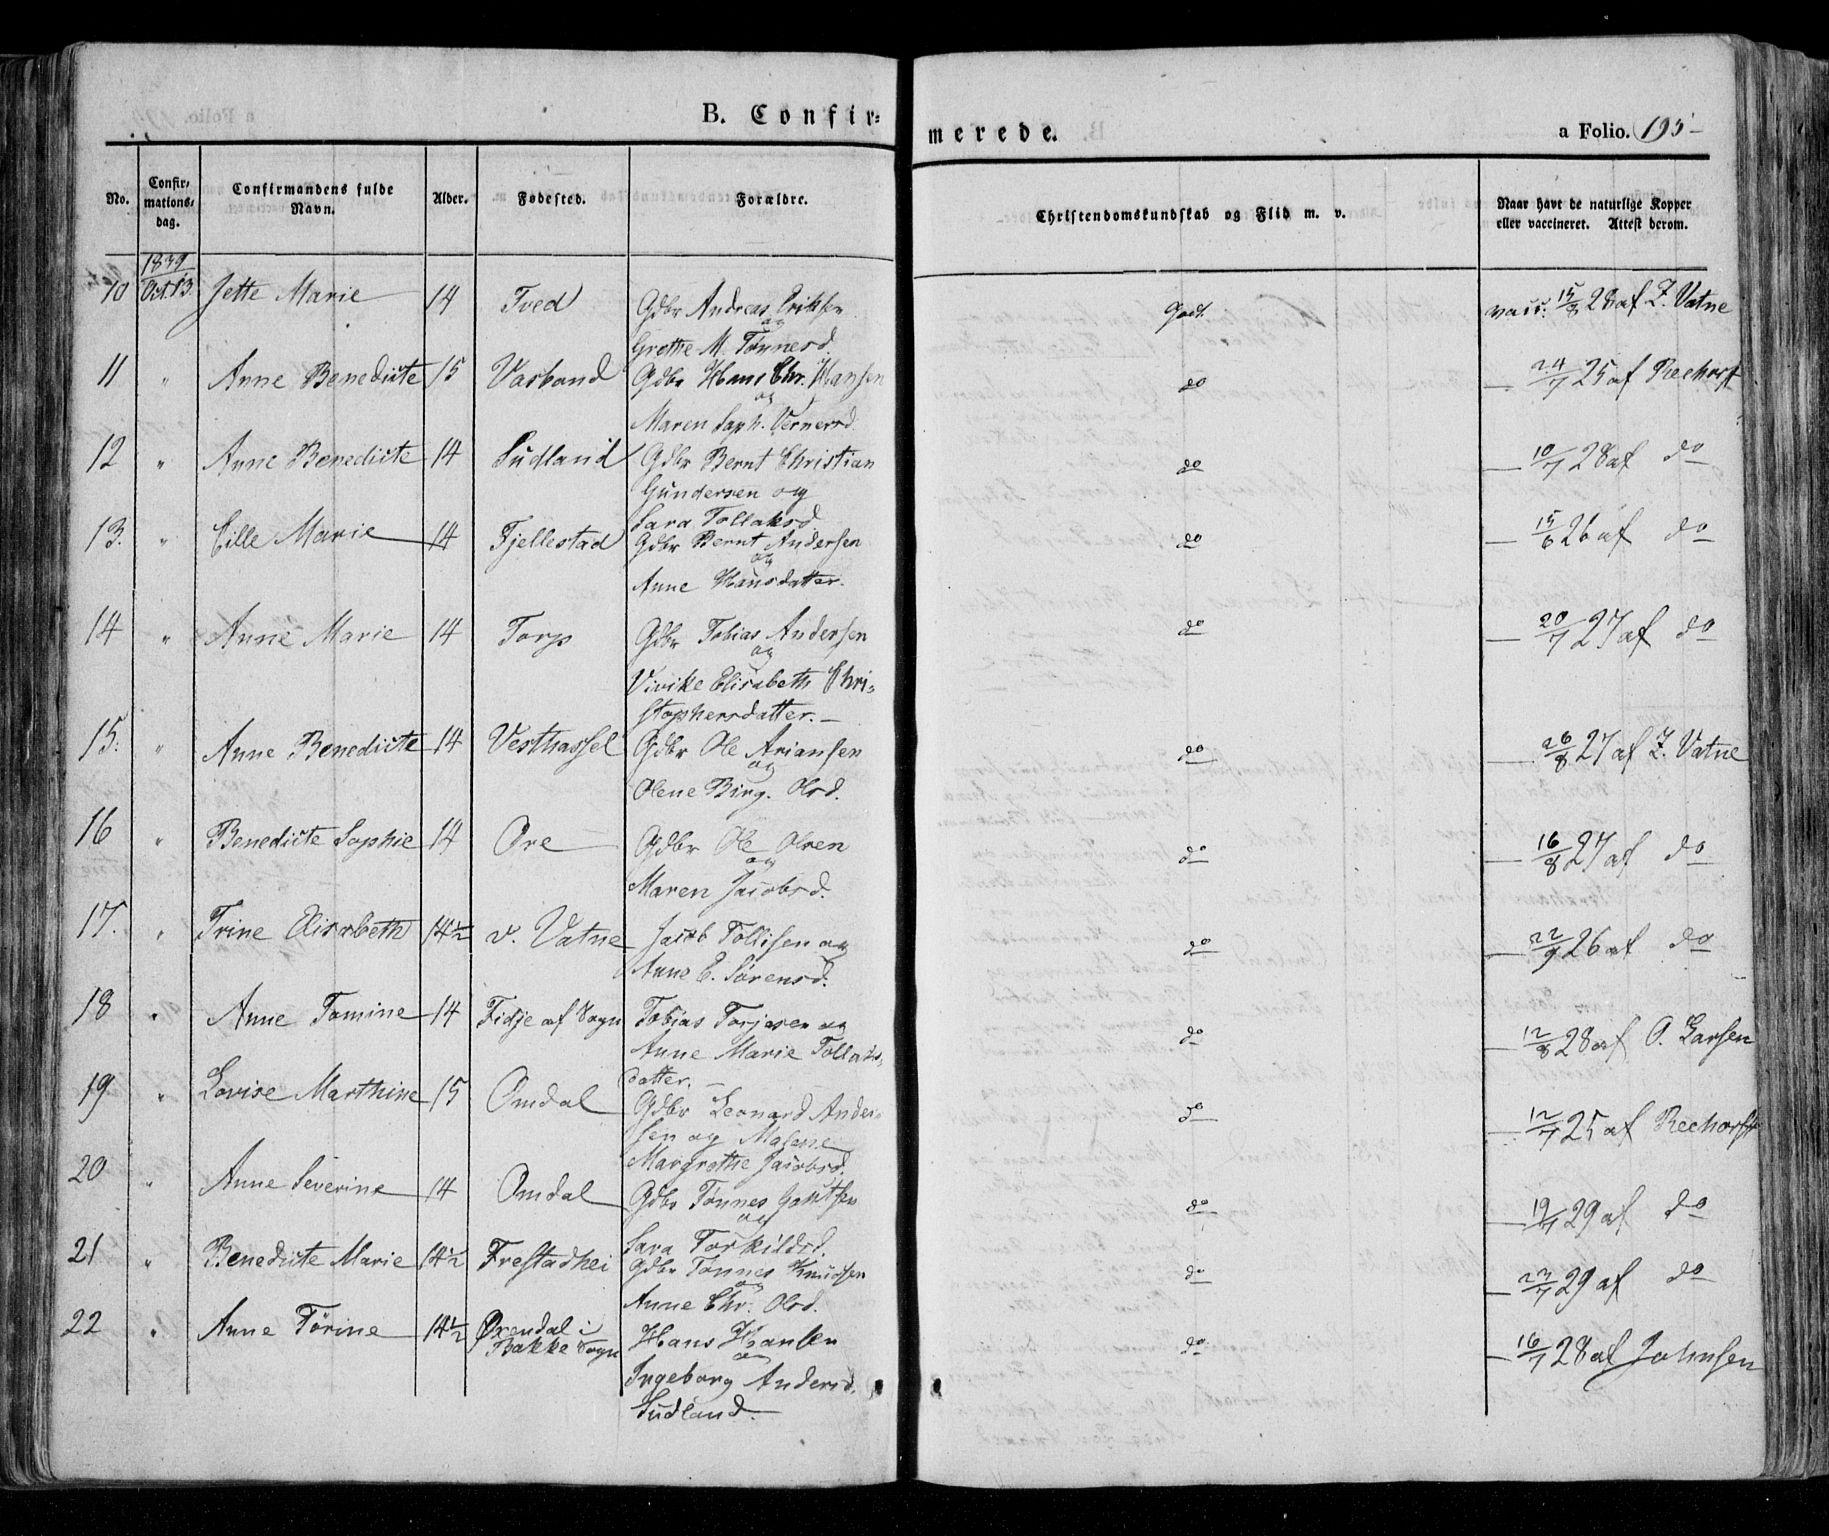 B. Confir=
merede.
a Folio. 195-
No.
Confir=
mations=
dag.
Confirmandens fulde
Navn.
Alder.
Fødested.
Forældre.
Christendomskundskab og Flid m. v.
Naar havt de naturlige Kopper
eller vaccineret. Attest derom.
1839
10 Oct. 13. Jette Marie 14 Tved Gdbr Andreas Eriksen
og
Grethe M. Tønnesd. Godt. vacc. 15/8 28 af Z. Vatne
11 " Anne Benedicte 15 Vasband Gdbr Hans Chr. Hansen
og
Maren Soph. Vernersd. do — 24/7 25 af Reehorst
12 " Anne Benedicte 14 Sudland Gdbr Bernt Christian
Gundersen og
Sara Tollaksd. do — 10/7 28 af do
13. " Cille Marie 14 Fjellestad Gdbr Bernt Andersen
og
Anne Hansdatter. do — 15/6 26 af do
14 " Anne Marie 14 Torp Gdbr Tobias Andersen
og
Vivike Elisabeth Chri=
stophersdatter. — do — 20/7 27 af do
15. " Anne Benedicte 14 Vesthassel Gdbr Ole Ariansen
og
Olene Birg. Olsd. do — 26/8 27 af Z. Vatne
16 " Benedicte Sophie 14 Ore — Gdbr Ole Olsen
og
Maren Jacobsd. do — 16/8 27 af do
17. " Trine Elisabeth 14½ v. Vatne Jacob Tollisen og
Anne E. Sørensd. do — 22/9 26 af do
18 " Anne Tomine 14 Fidje af Sogn Tobias Torjesen og
Anne Marie Tollaks=
datter. — do — 12/8 28 af O. Larsen
19 " Lovise Marthine 15 Omdal Gdbr Leonard Ander=
sen og Malene
Margrethe Jacobsd. do — 12/7 25 af Reehorst
20 " Anne Severine 14 Omdal Gdbr Tønnes
og
Sara Torkildsd. do — 19/7 29 af do
21 " Benedicte Marie 14½ Frestadhei Gdbr Tønnes Knudsen
og
Anne Chr. Olsd. do — 23/7 29 af do
22 " Anne Tørine 14½ Øxendal i
Bakke Sogn Hans Hansen
og
Ingeborg Andersd.
Sudland. do — 16/7 28 af Johnsen